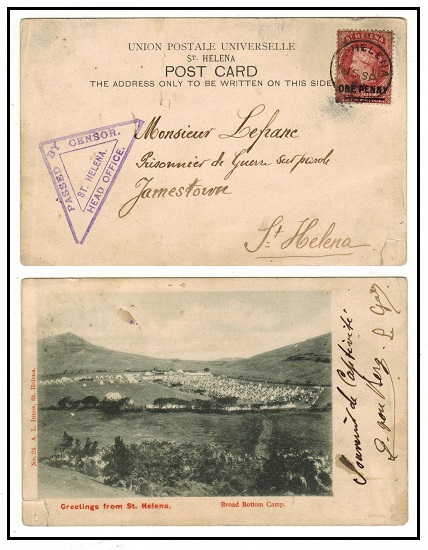 UNION POSTALE UNIVERSELLE
ST. HELENA
POST CARD
THE ADDRESS ONLY TO BE WRITTEN ON THIS SIDE
ST HELENA
ONE PENNY
HELENA
SP
PASSED BY CENSOR.
ST. HELENA.
HEAD OFFICE.
Monsieur Lefranc
Prisonnier de Guerre sur parole
Jamestown
St Helena
No. 24. A. L. Innes, St. Helena.
Greetings from St. Helena.
Broad Bottom Camp.
Souvenir de Captivité
von Berg